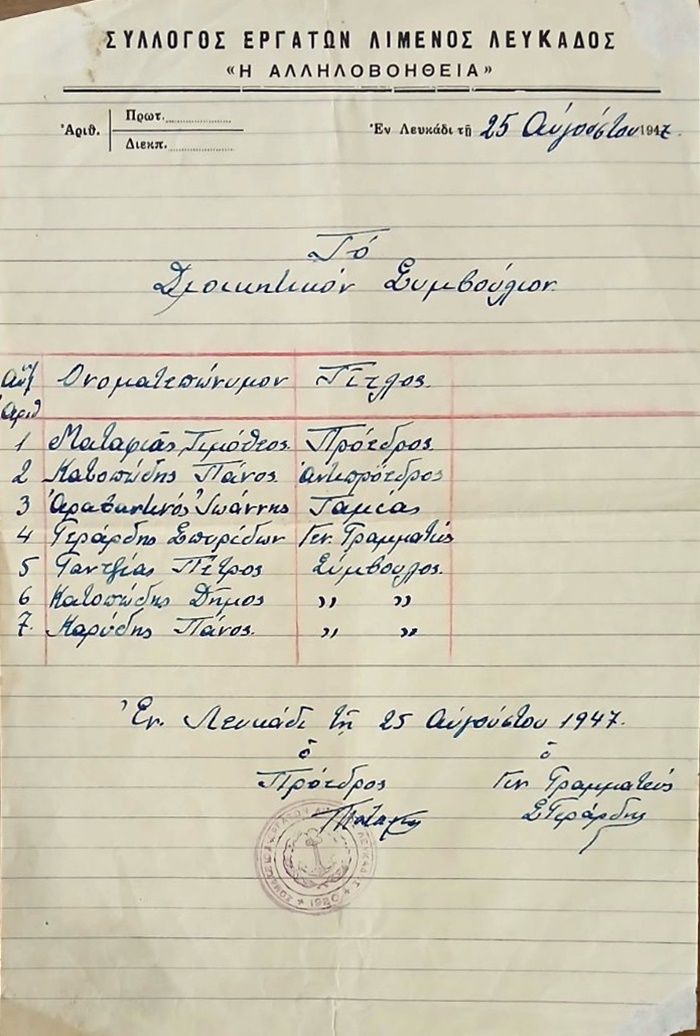 ΣΥΛΛΟΓΟΣ ΕΡΓΑΤΩΝ ΛΙΜΕΝΟΣ ΛΕΥΚΑΔΟΣ
«Η ΑΛΛΗΛΟΒΟΗΘΕΙΑ»
Ἀριθ. Πρωτ.
Διεκπ.
Ἐν Λευκάδι τῇ 25 Αὐγούστου 1947.
Τό
Διοικητικόν Συμβούλιον.
Αὔξ Ονοματεπώνυμον Τίτλος.
Ἀριθ
1 Ματαφιᾶς Τιμόθεος. Πρόεδρος.
2 Κατοπώδης Πάνος. Ἀντιπρόεδρος
3 Ἀραβαντινός Ἰωάννης Ταμίας
4 Γεράρδης Σπυρίδων Γεν. Γραμματεύς
5 Γαντζίας Πέτρος Σύμβουλος.
6 Κατοπώδης Δῆμος " "
7. Καρύδης Πάνος. " "
Ἐν. Λευκάδι τῇ 25 Αὐγούστου 1947.
ὁ ὁ
Πρόεδρος Γεν. Γραμματεύς
ΣΓεράρδης
ΛΕΥΚΑΔΟΣ
1920